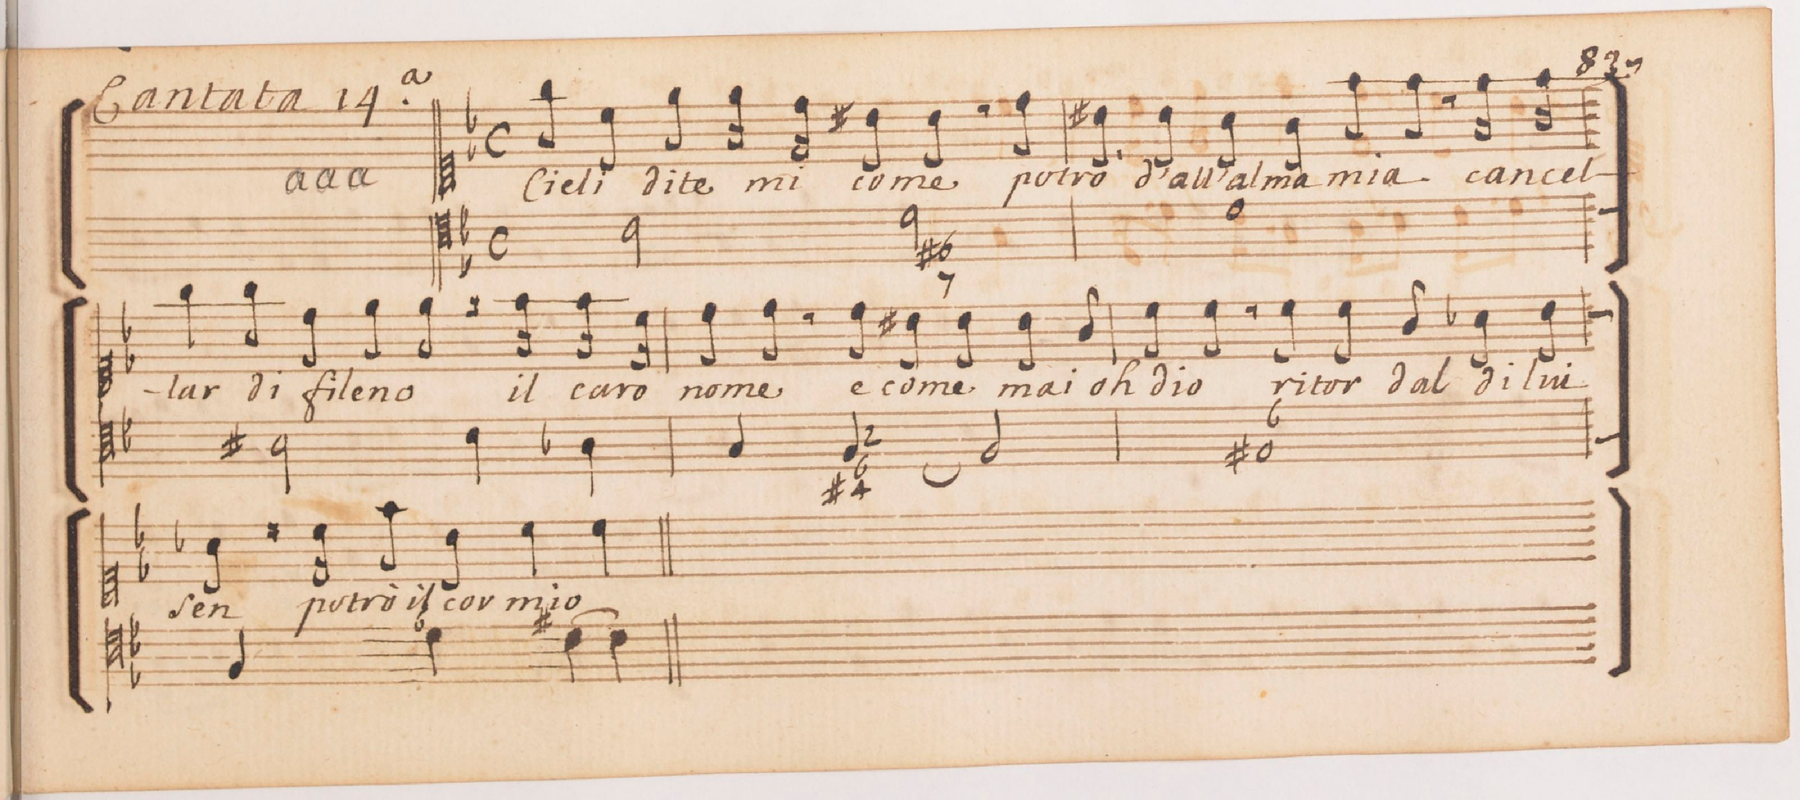 Cantata 14.a
83
aaa
Cieli dite mi come potrò d'all'alma mia cancel-
#6
7
-lar di fileno il caro nome e come mai oh dio ritor dal di lui
2
6
#4
6
sen potrò il cor mio
6
#